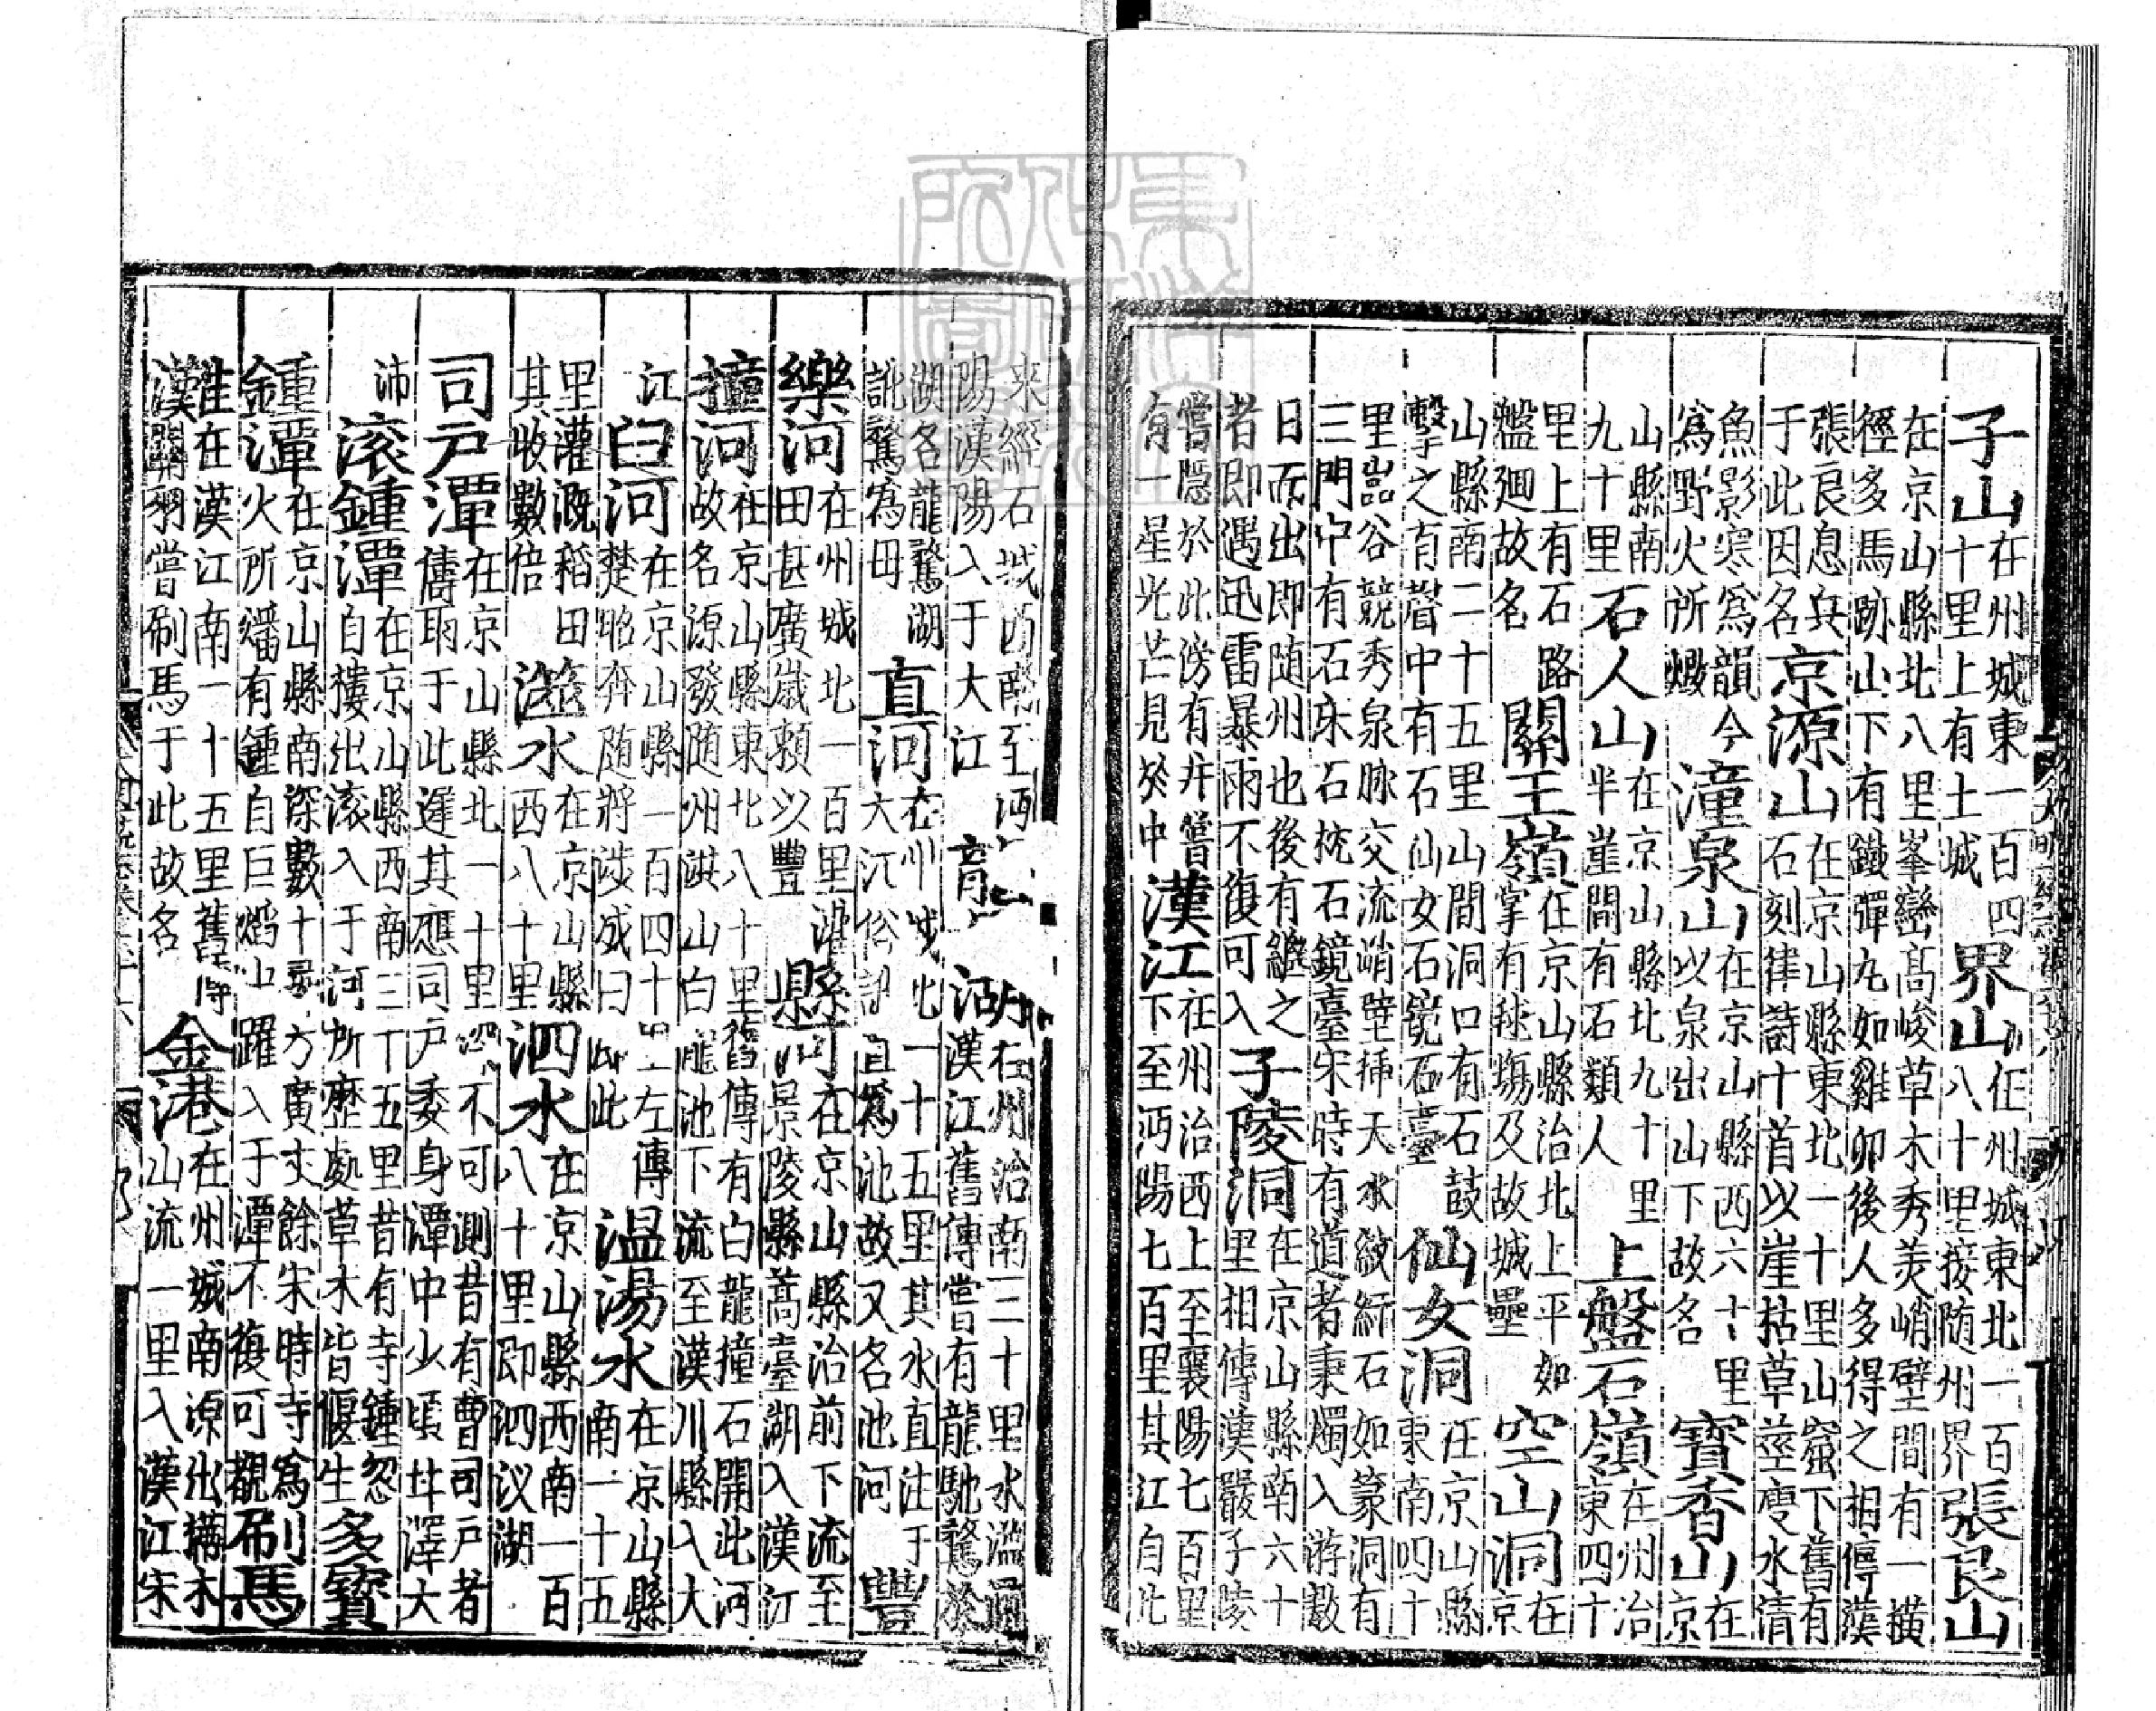 子山在州城東一百四十里上有土城界山在州城東北一百八十里接随州界張良山
在京山縣北八里峯巒髙峻草木秀羙峭壁間有一橫徑多馬跡山下有鐵彈九如雞卵後人多得之相傳漢
張良息兵于此因名京源山在京山縣東北一十里山窟下舊有石刻律詩十首以崖枯草莖虔水清
魚影寒為韻今為野火所燬潼泉山在京山縣西六十里以泉出山下故名寳香山在京
山縣南九十里石人山在京山縣北九十里半崖間有石類人上盤石嶺在州治東四十
里上有石路盤廻故名關王嶺在京山縣治北上平如掌有毬塲及故城壘空山洞在京
山縣南二十五里山間洞口有石鼓擊之有聲中有石仙女石鏡石臺仙女洞在京山縣東南四十
里嵓谷競秀泉脉交流峭壁揷天氷紋紆石如篆洞有三門中有石床石梳石鏡臺宋時有道者秉燭入游數
日而出即随州也後有繼之者即遇迅雷暴雨不復可入子陵洞在京山縣南六十里相傳漢嚴子陵
嘗隱於此傍有井嘗有一星光芒見於中漢江在州治西上至襄陽七百里下至沔陽七百里其江自北
来經石城西南至沔陽漢陽入于大江龍湖在州治南三十里水濫通漢江舊傳嘗有龍馳騖於
湖名龍騖湖訛騖為母直河在州城北一十五里其水直注于大江俗訛直為池故又名池河豐
樂河在州城北一百里灌田甚廣歲頼以豐縣河在京山縣治前下流至景陵縣蒿臺湖入漢江
撞河在京山縣東北八十里舊傳有白龍撞石開此河故名源發随州洪山白龍池下流至漢川縣入大
江臼河在京山縣一百四十里左傳楚昭奔随將涉成臼此温湯水在京山縣南一十五
里灌溉稻田其收數倍澨水在京山縣西八十里泗水在京山縣西南一百八十里即泗汊湖
司户潭在京山縣北一十里深不可測昔有曹司户者傳雨于此遲其應司户委身潭中少頃井澤大
沛滚鍾潭在京山縣西南三十五里昔有寺鍾忽自樓出滚入于河所歷處草木皆偃生多寳
鍾潭在京山縣南深數十尋方廣丈餘宋時寺為火所燔有鍾自巨焰中躍入于潭不復可觀刷馬
灘在漢江南一十五里舊傳漢關羽嘗刷馬于此故名金港在州城南源出搆木山流一里入漢江宋